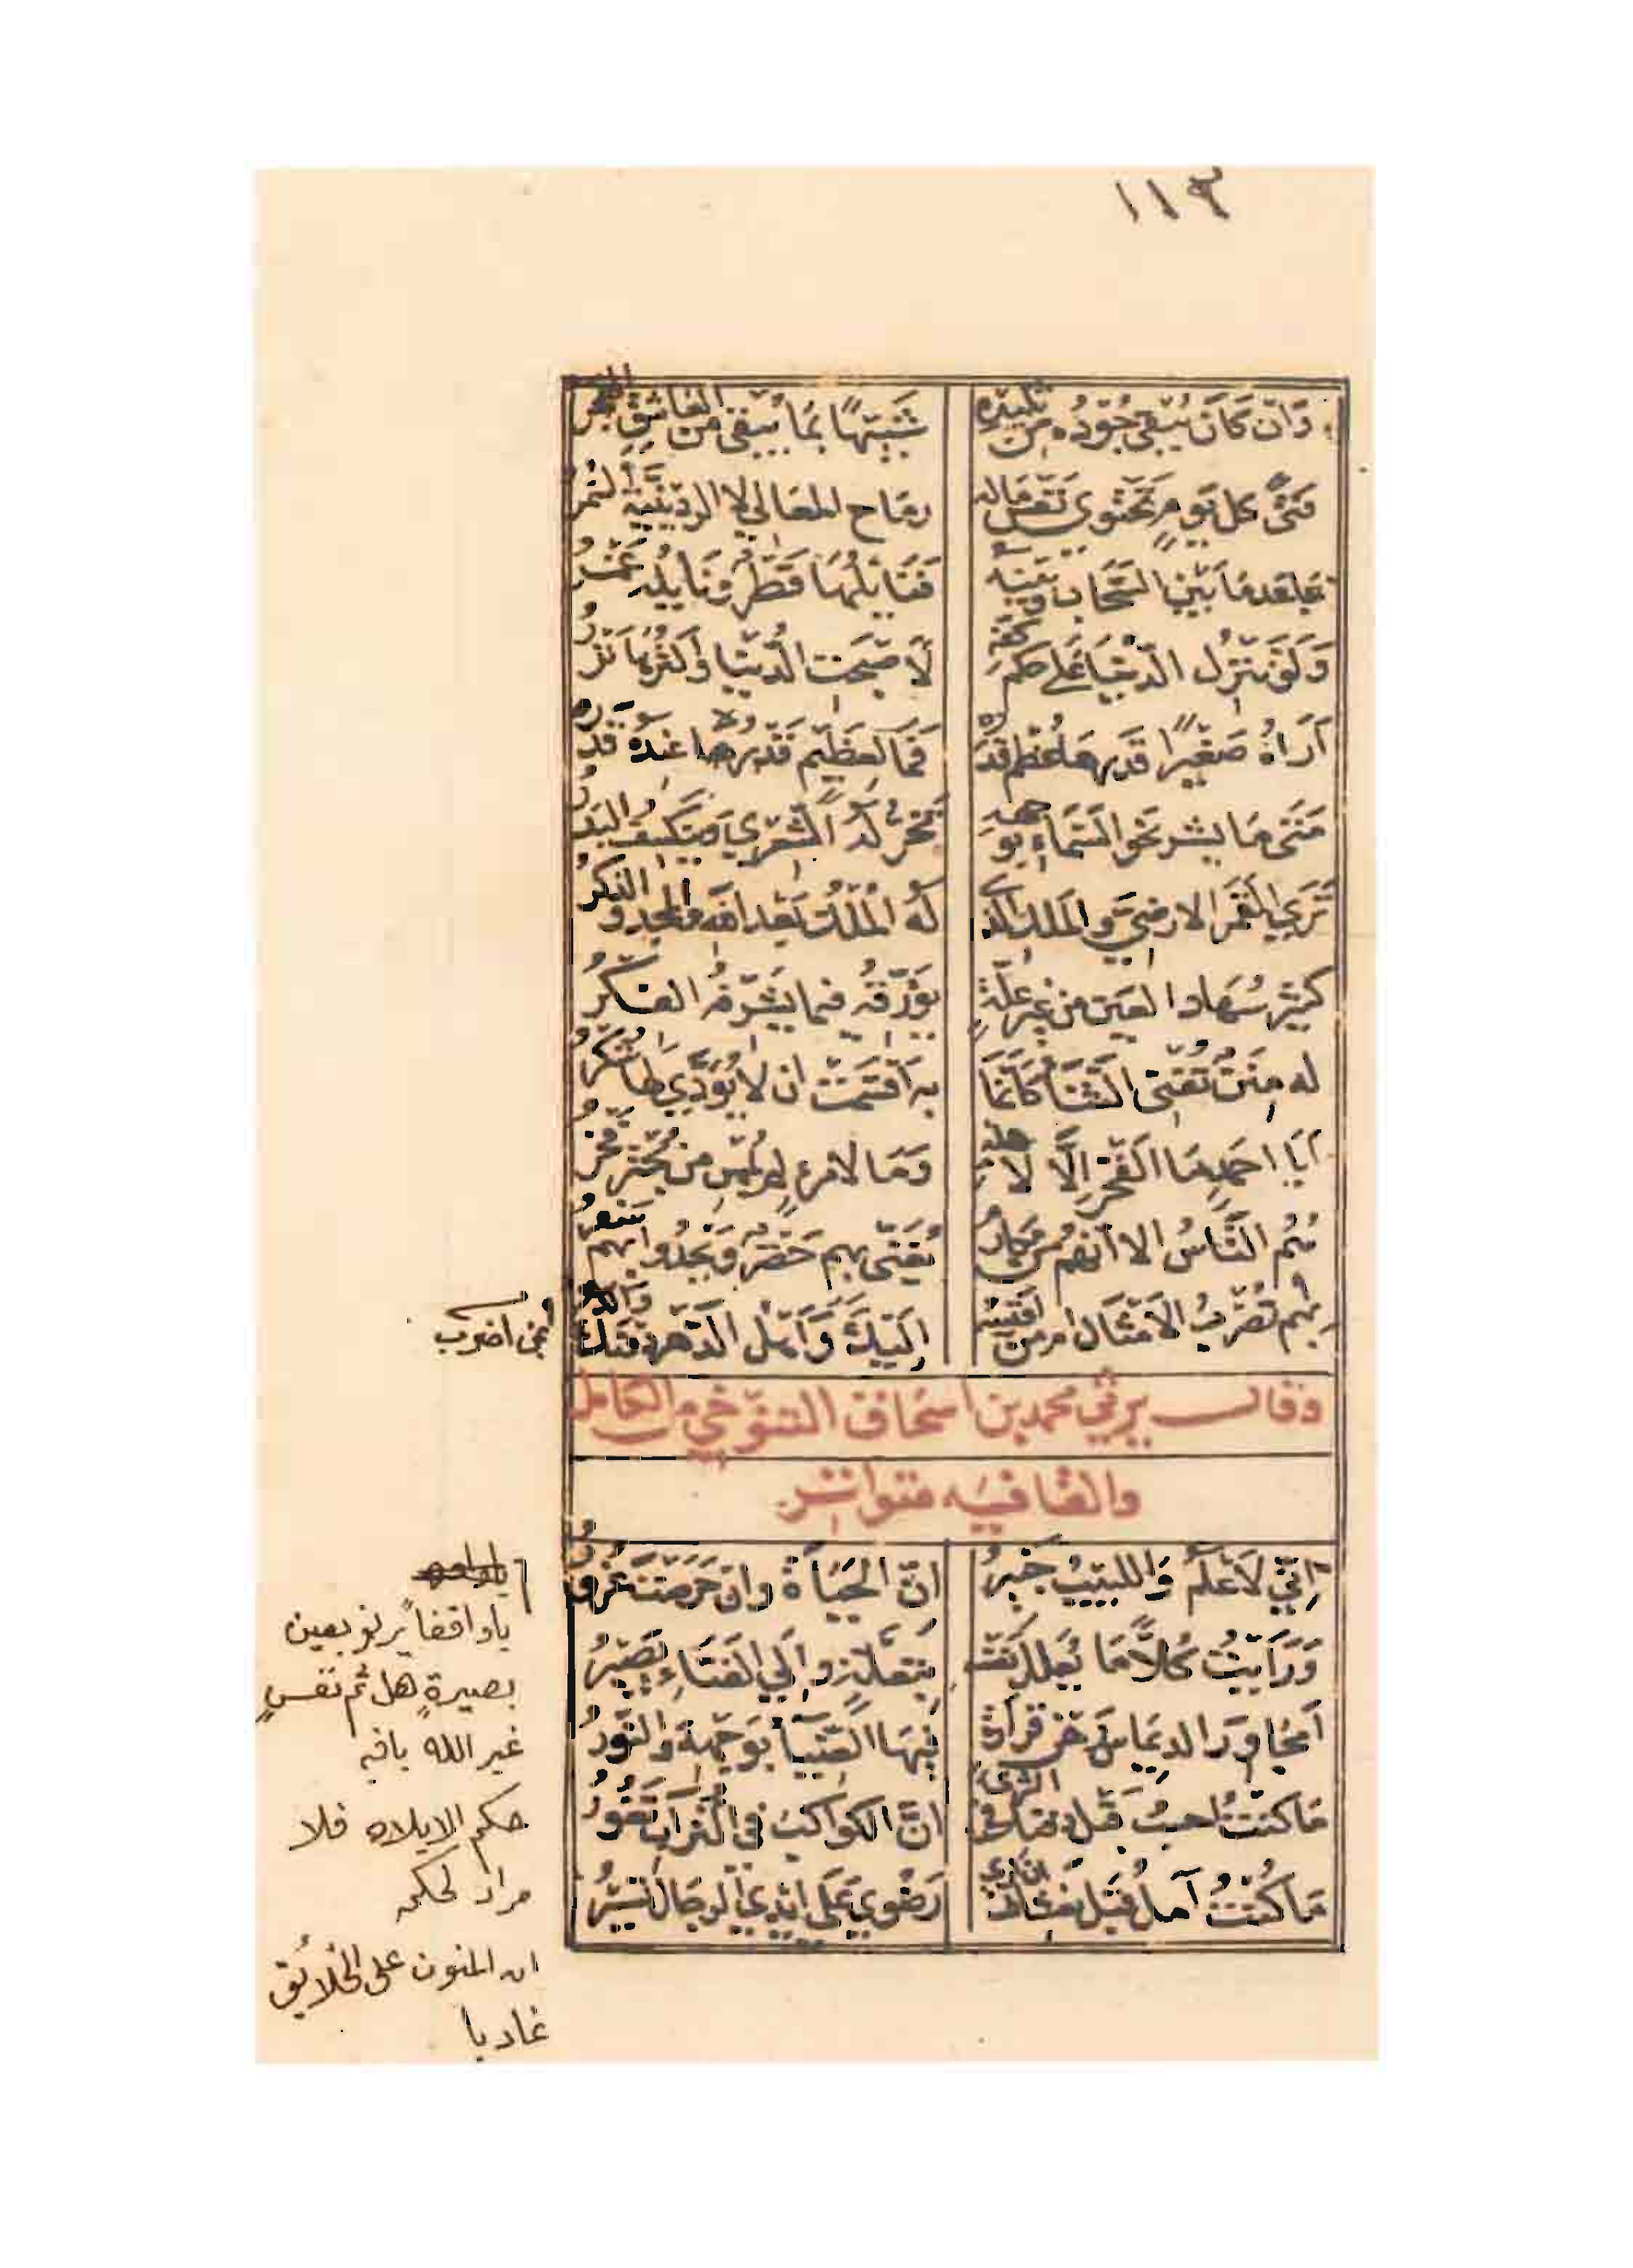 ١١٣
وَان كَانَ يُبْقي جُوْدُه من تليدِه شَبيْهًا بمَا يُبقي من العَاشِقِ الهجرُ
فتىً كل يَومٍ تحتَوي نفسَ ماله رمَاح المعَالي لا الردَينيّة السُّمرُ
تباعد مَا بَين السَّحَاب وبَينه فنَائلهَا قَطرٌ ونَايلهُ غَمْرُ
وَلَو تنزل الدّنيَا عَلى حكم كفه لَاصبَحَت الدُّنيَا وَاكثرُهَا نَزرُ
أراهُ صَغيرًا قدرهَا عُظم قَدره فمَا لعَظيم قَدرُها عندَه قَدرُ
مَتى مَا يشر نحو السَّمَاء بوجهه تخرّ لهُ الشّعرى وينكسف البَدرُ
تَرى القَمَر الارضيَ والملك الذي لَه المُلك بَعد الله والمجد والذكرُ
كثير سُهَاد العَين من غير علّةٍ يؤرّقهُ فيما يشرّفهُ الفكرُ
له مِنَنٌ تُفني الثنَاء كَأَنمَا به أقسَمَت ان لا يُؤَدّي لهَا شكرُ
أيَا احمَدٍ مَا الفَخر إلّا لاهله وَمَا لامرءٍ لم يُمسِ من بُحترٍ فخرُ
هُم النَّاسُ الا أنهُم من مكارمٍ يُغَنّى بهم حَضرٌ ويَحدُوا بهم سَفرُ
بهم تُضرَبُ الأمثَال ام من اقيسُه إليكَ وَأهل الدّهر دونكَ والدَّهرُ
بمن اضرب
وقال يرثي محمد بن اسحاق التنوّخي من الكامل
والقافيه متواتر
إنّي لَأعلَمُ وَاللبيبُ خَبيرُ انّ الحَيَاةَ وان حَرصتَ غُرورُ
وَرَأيتُ كُلًّا مَا يُعلل نفسَه بتعلّةٍ وإلى الفنَاءِ يصَيرُ
أمُجَاورَ الديمَاس رَهن قرَارةٍ فيهَا الضيَاءُ بوَجهه والنّورُ
مَا كنتُ احسبُ قبل دفنك في الثرى انّ الكواكبَ في التّرَاب تَغورُ
مَا كُنتُ آمل قَبل نعشك ان أرى رَضوى عَلى ايدي الرجَال تسيرُ
يا واقفاً يرنو بعين
بصيرةٍ هل ثم نفسٍ
غير الله باقيه
حكم الإيلاه فلا
مراد لحكمه
ان المنون على الخلائق
غاديا